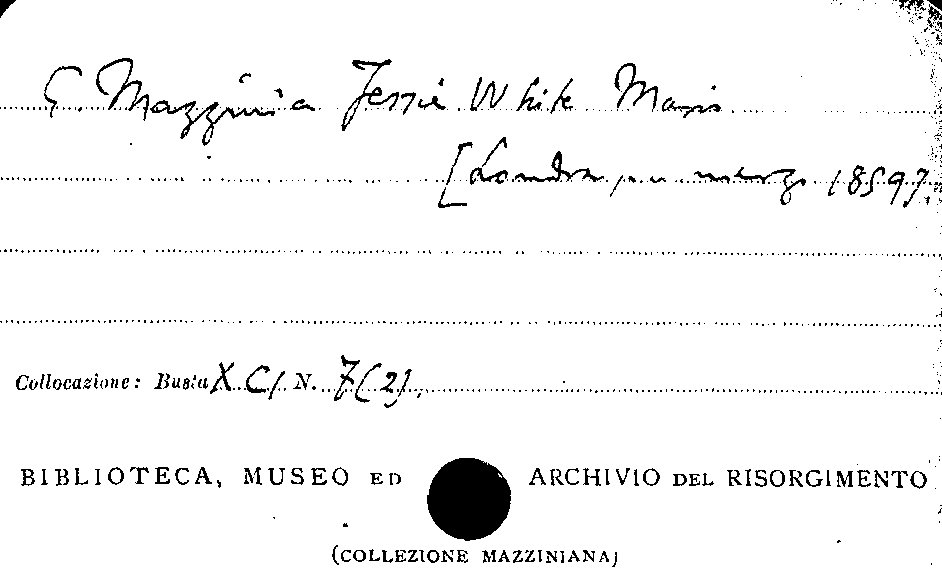 G. Mazzini a Jessie White Mario
[Londra, marzo 1859].
Collocazione: Busta XCI N. 7(2).
BIBLIOTECA, MUSEO ED ARCHIVIO DEL RISORGIMENTO
(COLLEZIONE MAZZINIANA)